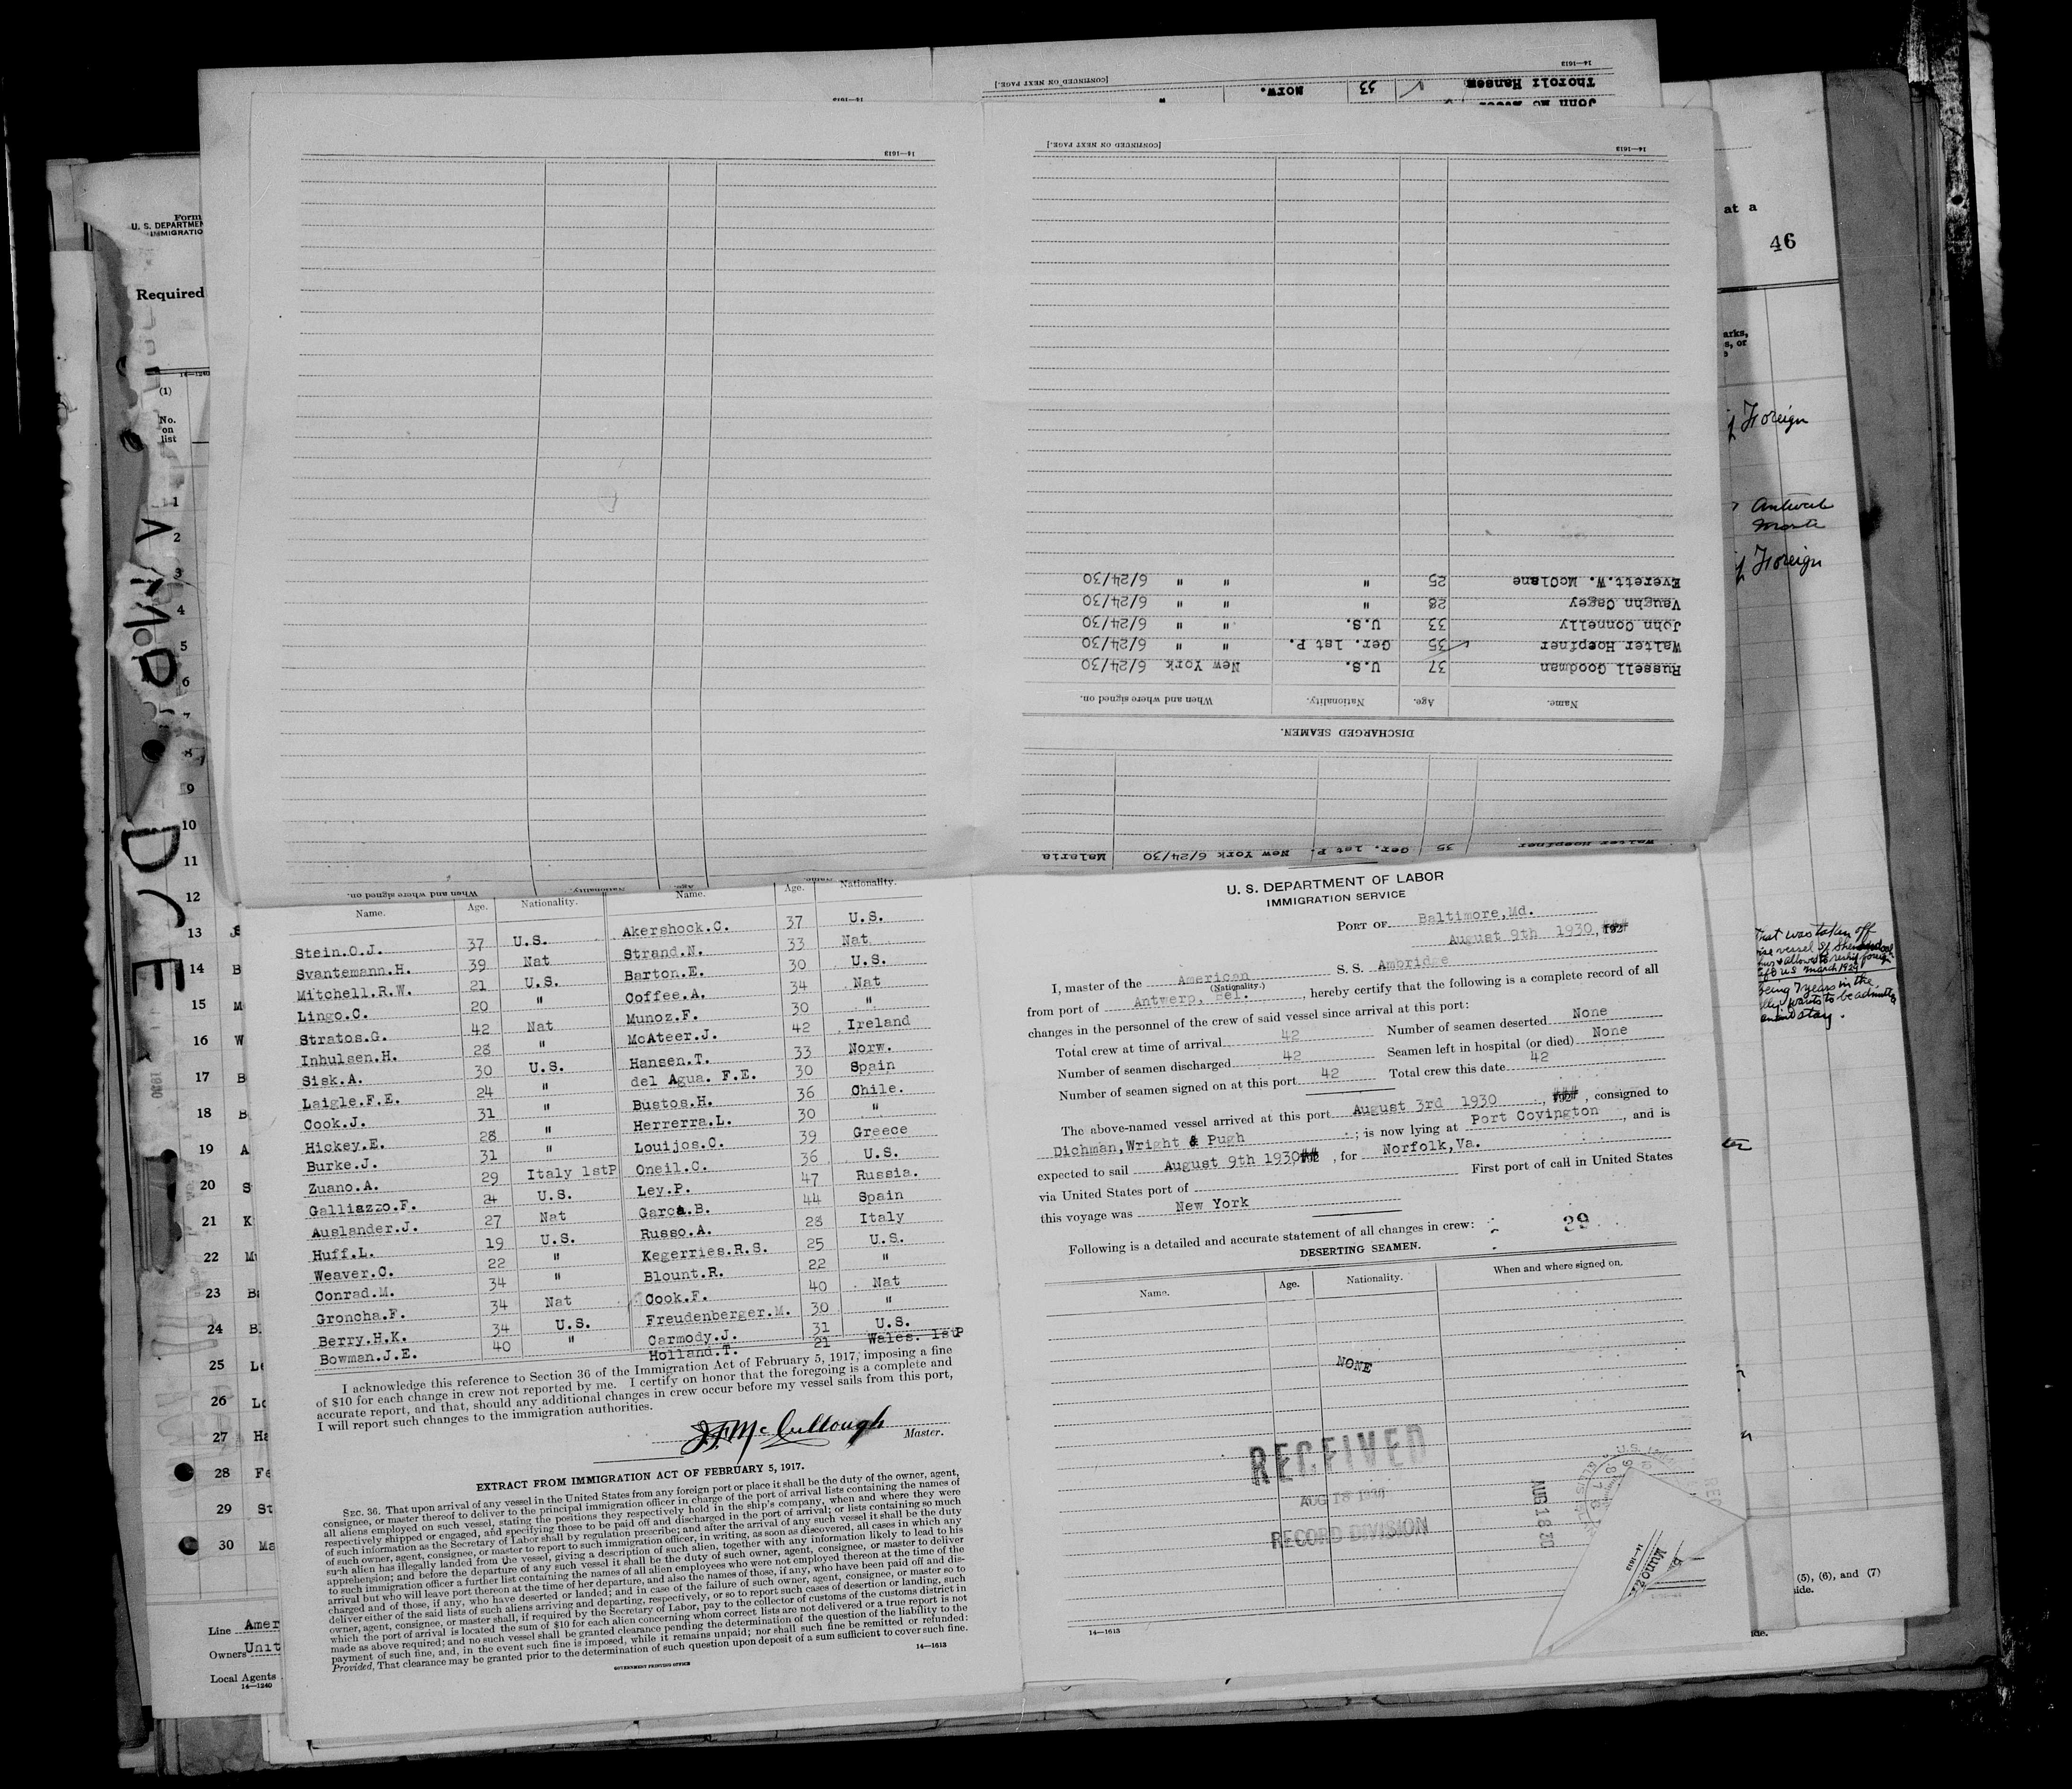 14—1613
[CONTINUED ON NEXT PAGE.]
14—1613
Thorolf Hansen 33 Norw. "
14—1613
[CONTINUED ON NEXT PAGE.]
14—1613
Everett.W. McClane 25 " " " 6/24/30
Vaughn Cagey 28 " " " 6/24/30
John Connelly 33 U.S. " " 6/24/30
Walter Hoepfner 35 Ger. 1st P. " " 6/24/30
Russell Goodman 37 U.S. New York 6/24/30
Name. Age. Nationality. When and where signed on.
DISCHARGED SEAMEN.
Walter Hoepfner 35 Ger. 1st P. New York 6/24/30 Malaria
Form
U. S. DEPARTMEN
IMMIGRATIO
Required
14—1240
(1)
No.
on
list
1
2
3
4
5
6
7
8
9
10
11
12
13
14 B
15 M
16 W
17 B
18 B
19 A
20 S
21 K
22 M
23 B
24 B.
25 Le
26 Lo
27 Ha
28 Fe
29 St
30 Ma
Line Amer
Owners Unit
Local Agents
14—1240
at a
46
arks,
s, or
e
of Foreign
of Foreign
(5), (6), and (7)
ide.
ide.
When and where signed on. Nationality. Age. Name.
Name. Age. Nationality. Name. Age. Nationality.
Stein.O.J. 37 U.S. Akershock.C. 37 U.S.
Svantemann.H. 39 Nat Strand.N. 33 Nat
Mitchell.R.W. 21 U.S. Barton.E. 30 U.S.
Lingo.C. 20 " Coffee.A. 34 Nat
Stratos.G. 42 Nat Munoz.F. 30 "
Inhulsen.H. 28 " McAteer.J. 42 Ireland
Sisk.A. 30 U.S. Hansen.T. 33 Norw.
Laigle.F.E. 24 " del Agua. F.E. 30 Spain
Cook.J. 31 " Bustos.H. 36 Chile.
Hickey.E. 28 " Herrerra.L. 30 "
Burke.J. 31 " Louijos.C. 39 Greece
Zuano.A. 29 Italy 1stP Oneil.C. 36 U.S.
Galliazzo.F. 24 U.S. Ley.P. 47 Russia.
Auslander.J. 27 Nat Garca.B. 44 Spain
Huff.L. 19 U.S. Russo.A. 28 Italy
Weaver.C. 22 " Kegerries.R.S. 25 U.S.
Conrad.M. 34 " Blount.R. 22 "
Groncha.F. 34 Nat Cook.F. 40 Nat
Berry.H.K. 34 U.S. Freudenberger.M. 30 "
Bowman.J.E. 40 " Carmody.J. 31 U.S.
Holland.T. 21 Wales. 1stP
I acknowledge this reference to Section 36 of the Immigration Act of February 5, 1917, imposing a fine
of $10 for each change in crew not reported by me. I certify on honor that the foregoing is a complete and
accurate report, and that, should any additional changes in crew occur before my vessel sails from this port,
I will report such changes to the immigration authorities.
J F McCullough
Master.
EXTRACT FROM IMMIGRATION ACT OF FEBRUARY 5, 1917.
SEC. 36. That upon arrival of any vessel in the United States from any foreign port or place it shall be the duty of the owner, agent,
consignee, or master thereof to deliver to the principal immigration officer in charge of the port of arrival lists containing the names of
all aliens employed on such vessel, stating the positions they respectively hold in the ship's company, when and where they were
respectively shipped or engaged, and specifying those to be paid off and discharged in the port of arrival; or lists containing so much
of such information as the Secretary of Labor shall by regulation prescribe; and after the arrival of any such vessel it shall be the duty
of such owner, agent, consignee, or master to report to such immigration officer, in writing, as soon as discovered, all cases in which any
such alien has illegally landed from the vessel, giving a description of such alien, together with any information likely to lead to his
apprehension; and before the departure of any such vessel it shall be the duty of such owner, agent, consignee, or master to deliver
to such immigration officer a further list containing the names of all alien employees who were not employed thereon at the time of the
arrival but who will leave port thereon at the time of her departure, and also the names of those, if any, who have been paid off and dis-
charged and of those, if any, who have deserted or landed; and in case of the failure of such owner, agent, consignee, or master so to
deliver either of the said lists of such aliens arriving and departing, respectively, or so to report such cases of desertion or landing, such
owner, agent, consignee, or master shall, if required by the Secretary of Labor, pay to the collector of customs of the customs district in
which the port of arrival is located the sum of $10 for each alien concerning whom correct lists are not delivered or a true report is not
made as above required; and no such vessel shall be granted clearance pending the determination of the question of the liability to the
payment of such fine, and, in the event such fine is imposed, while it remains unpaid; nor shall such fine be remitted or refunded:
Provided, That clearance may be granted prior to the determination of such question upon deposit of a sum sufficient to cover such fine.
GOVERNMENT PRINTING OFFICE
14—1613
U. S. DEPARTMENT OF LABOR
IMMIGRATION SERVICE
PORT OF Baltimore,Md.
August 9th 1930, 192
I, master of the American S. S. Ambridge
(Nationality.)
from port of Antwerp, Bel., hereby certify that the following is a complete record of all
changes in the personnel of the crew of said vessel since arrival at this port:
Total crew at time of arrival 42 Number of seamen deserted None
Number of seamen discharged 42 Seamen left in hospital (or died) None
Number of seamen signed on at this port 42 Total crew this date 42
The above-named vessel arrived at this port August 3rd 1930, 192, consigned to
Dichman,Wright & Pugh; is now lying at Port Covington, and is
expected to sail August 9th 1930 192, for Norfolk,Va.
via United States port of First port of call in United States
this voyage was New York
Following is a detailed and accurate statement of all changes in crew: 29
DESERTING SEAMEN.
Name. Age. Nationality. When and where signed on.
NONE
RECEIVED
AUG 18 1930
RECORD DIVISION
AUG 18 30
14—1613
Munoz
14—1613